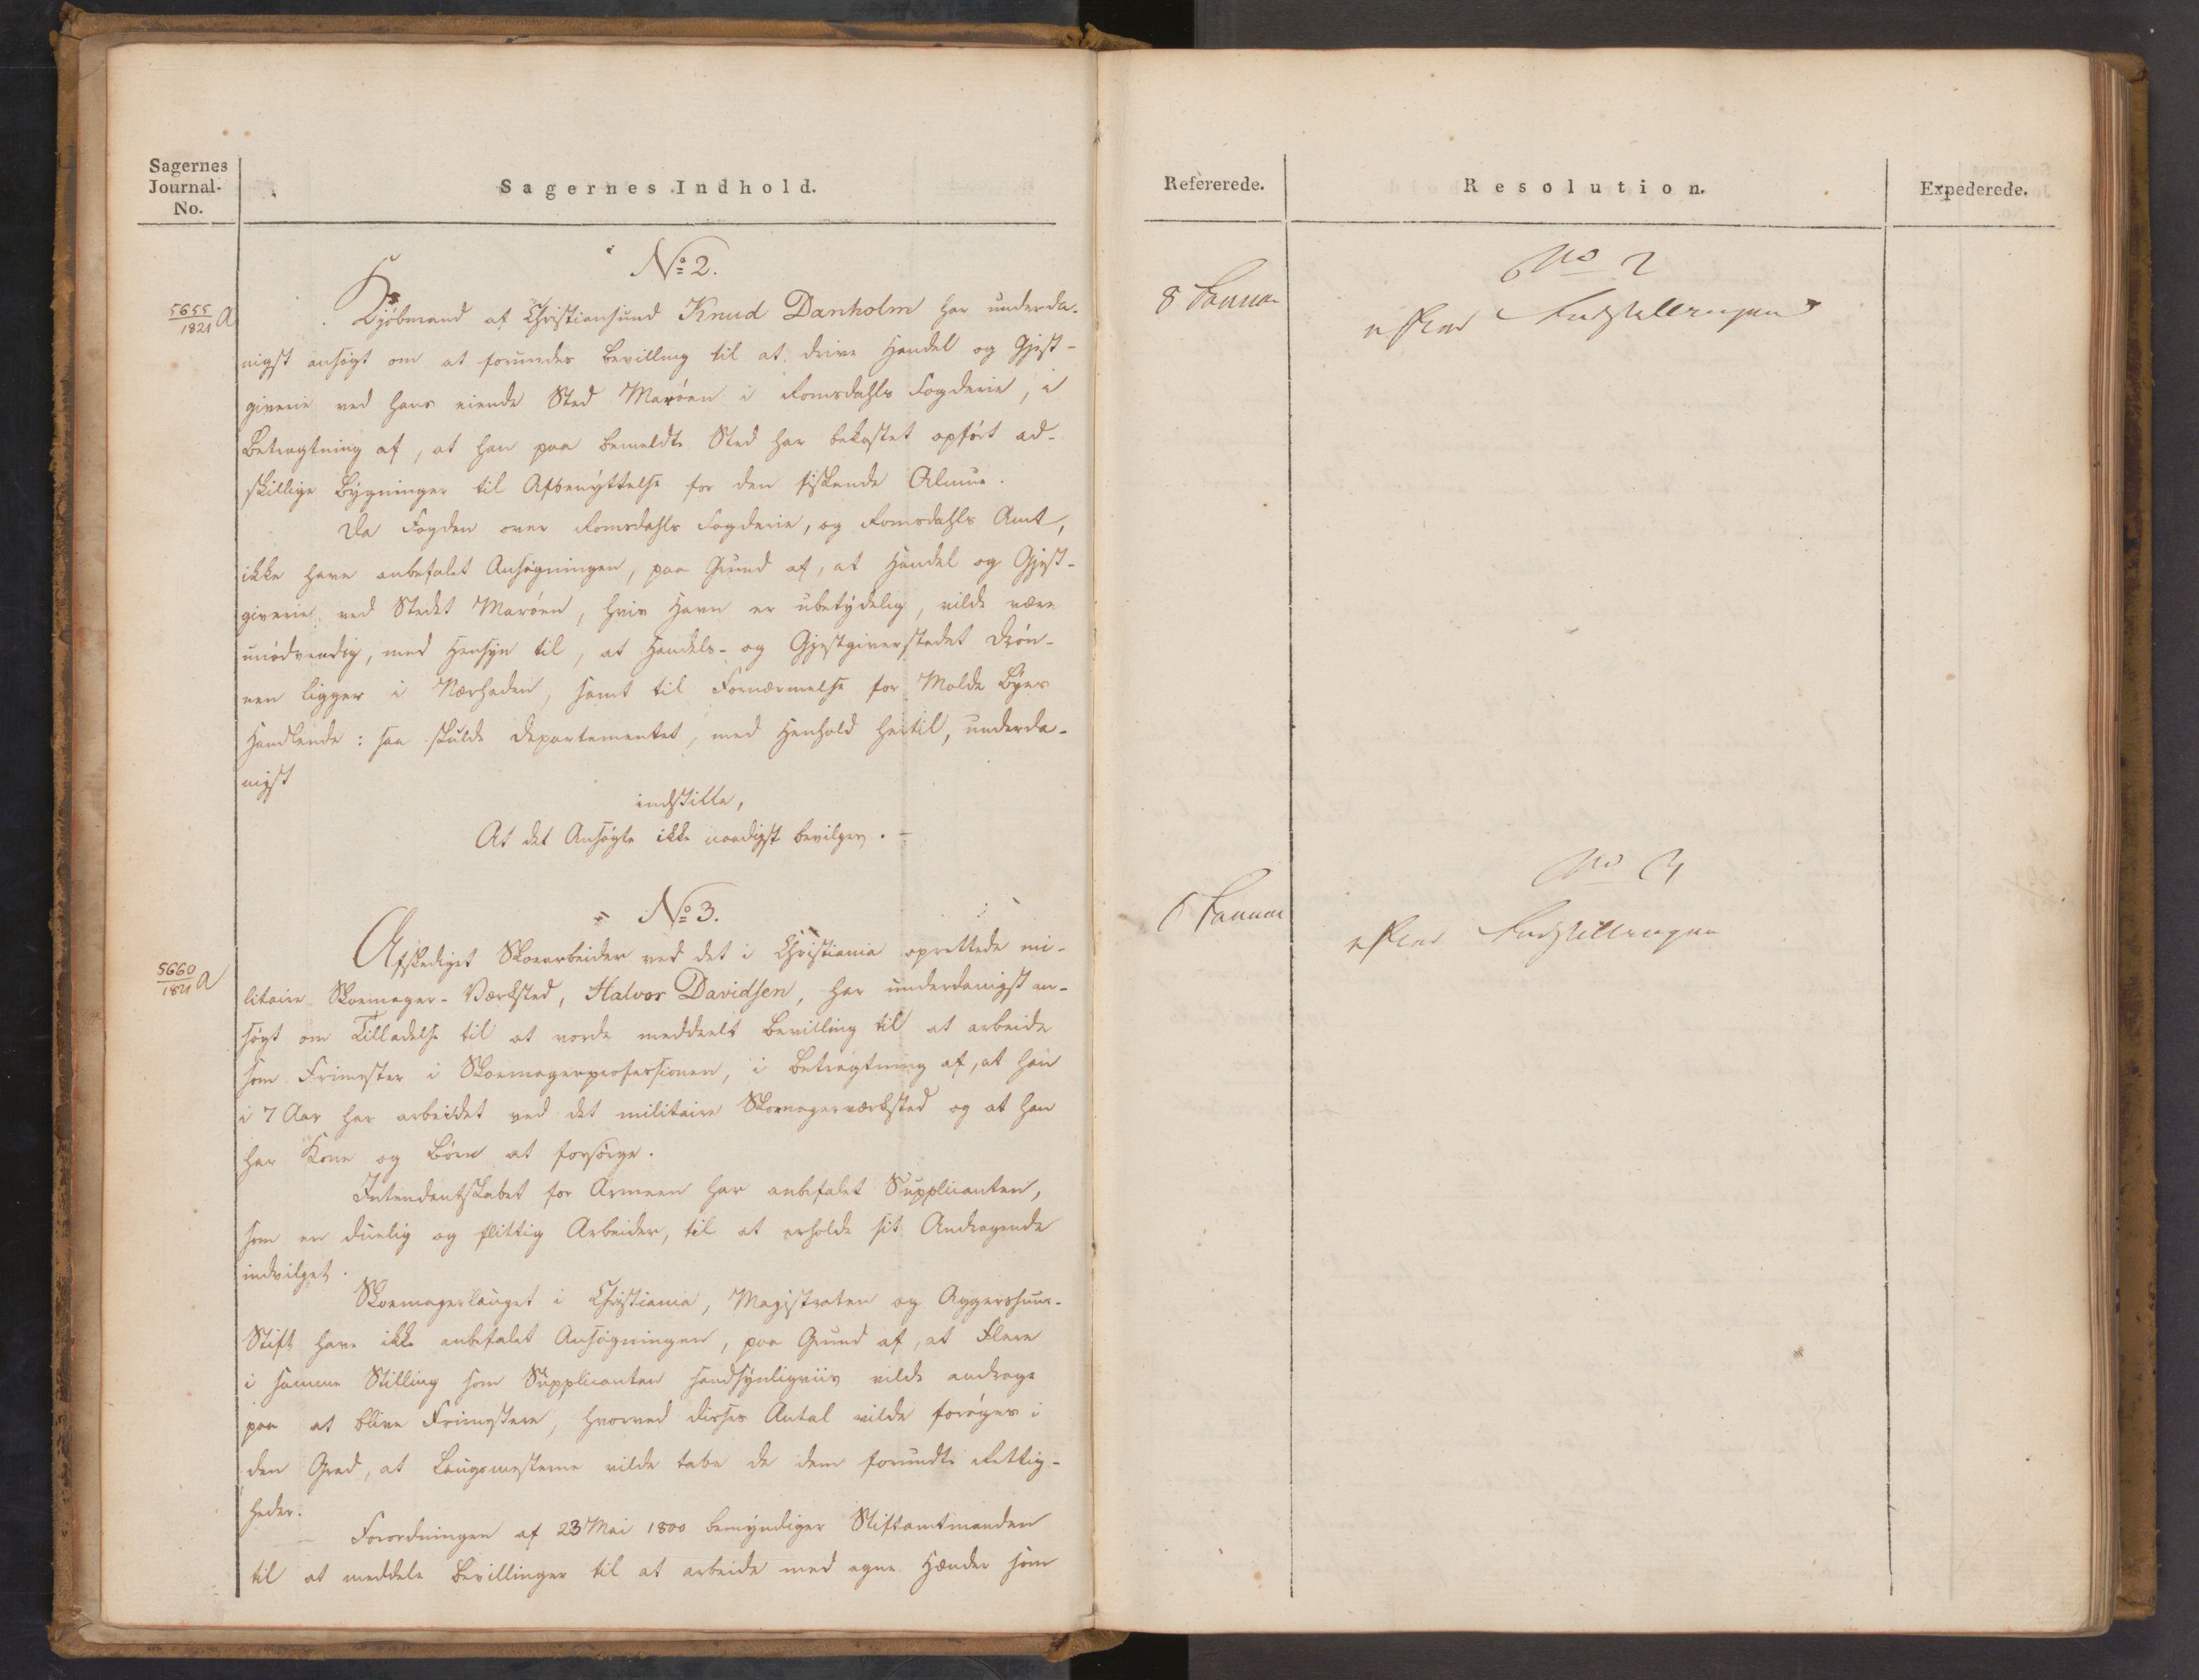 Sagernes
Journal-
No.
Sagernes Indhold.
No 2.
5655/1821 A
Kjöbmand af Christiansund Knud Danholm har underda-
nigst ansögt om at forundes Bevilling til at drive Handel og Gjest-
giverie ved hans eiende Sted Maröen i Romsdahls Fogderie, i
Betragtning af, at han paa bemeldte Sted har bekostet opfört ad-
skillige Bÿgninger til Afbenÿttelse for den fiskende Almue.
Da Fogden over Romsdahls Fogderie, og Romsdahls Amt,
ikke have anbefalet Ansögningen, paa Grund af, at Handel og Gjest-
giverie ved Stedet Maröen, hvis Havn er ubetÿdelig, vilde være
unödvendig, med Hensyn til, at Handels- og Gjestgiverstedet
nen ligger i Nærheden, samt til Fornærmelse for Molde Byes
Handlende: saa skulde Departementet, med Henhold hertil, underda-
nigst
indstille,
At det Ansögte ikke naadigst bevilges. -
No 3.
5660/1821 A
Afskediget Skoearbeider ved det i Christiania oprettede mi-
litaire Skoemager-Værksted, Halvor Davidsen, har underdanigst an-
sögt om Tilladelse til at vorde meddeelt Bevilling til at arbeide
som Frimester i Skoemagerprofessionen, i Betragtning af, at han
i 7 Aar har arbeidet ved det militaire Skomagerværksted og at han
har Kone og Börn at forsörge.
Intendentskabet for Armeen har anbefalet Supplicanten,
som en duelig og flittig Arbeider, til at erholde sit Andragende
indvilget.
Skoemagerlauget i Christiania, Magistraten og Aggershuus-
Stift have ikke anbefalet Ansögningen, paa Grund af, at Flere
i samme Stilling som Supplicanten sandsÿnligviis vilde andrage
paa at blive Frimestere, hvorved disses Antal vilde foröges i
den Grad, at Laugsmesterne vilde tabe de dem forundte Rettig-
heder.
Forordningen af 23 Mai 1800 bemyndiger Stiftamtmanden
til at meddele Bevillinger til at arbeide med egne Hænder som
Refererede.
Resolution.
Expederede.
8 Januar
No 2
efter Indstillingen
8 Januar
No 3
efter Indstillingen